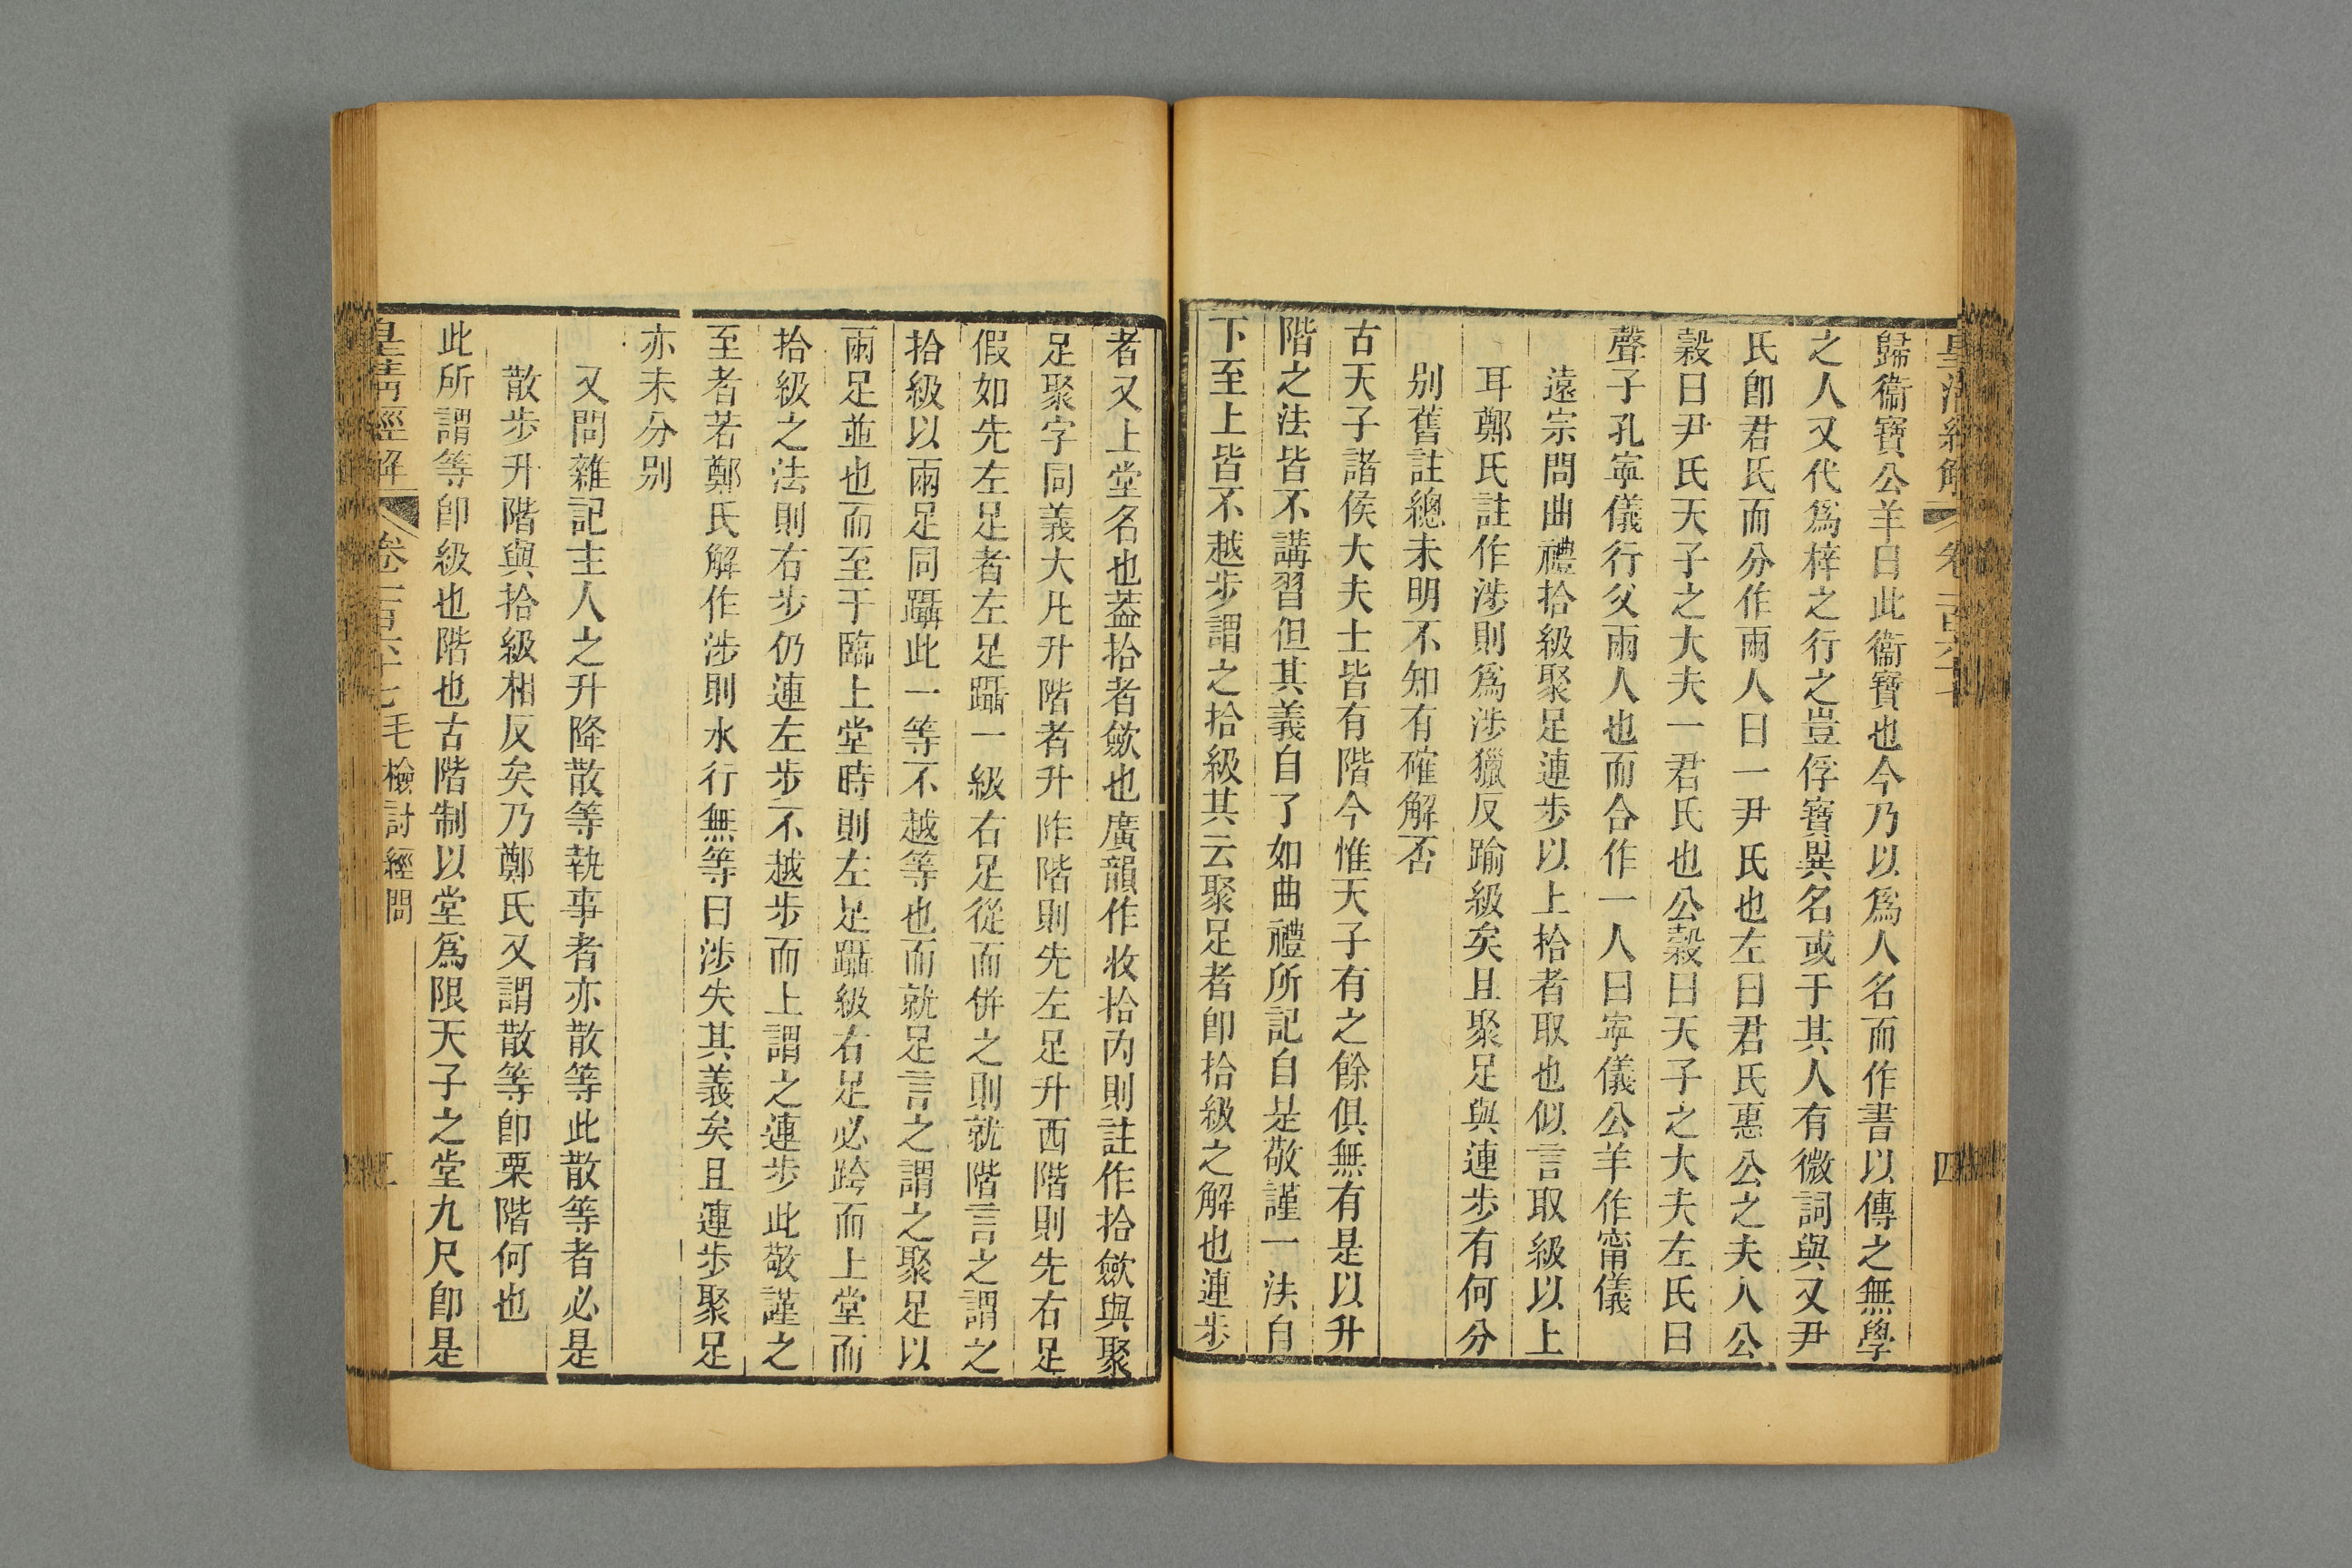 皇清經解 卷一百六十七 四
歸衞寶公羊曰此衞寶也今乃以爲人名而作書以傳之無學
之人又代爲梓之行之豈俘寶異名或于其人有微詞與又尹
氏卽君氏而分作兩人曰一尹氏也左曰君氏惠公之夫人公
穀曰尹氏天子之大夫一君氏也公穀曰天子之大夫左氏曰
聲子孔寧儀行父兩人也而合作一人曰寧儀公羊作甯儀
遠宗問曲禮拾級聚足連步以上拾者取也似言取級以上
耳鄭氏註作涉則爲涉獵反踰級矣且聚足與連步有何分
別舊註總未明不知有確解否
古天子諸侯大夫士皆有階今惟天子有之餘俱無有是以升
階之法皆不講習但其義自了如曲禮所記自是敬謹一法自
下至上皆不越步謂之拾級其云聚足者卽拾級之解也連步
者又上堂名也葢拾者斂也廣韻作收拾內則註作拾斂與聚
足聚字同義大凡升階者升阼階則先左足升西階則先右足
假如先左足者左足躡一級右足從而併之則就階言之謂之
拾級以兩足同躡此一等不越等也而就足言之謂之聚足以
兩足並也而至于臨上堂時則左足躡級右足必跨而上堂而
拾級之法則右步仍連左步不越步而上謂之連步此敬謹之
至者若鄭氏解作涉則水行無等曰涉失其義矣且連步聚足
亦未分別
又問雜記主人之升降散等執事者亦散等此散等者必是
散步升階與拾級相反矣乃鄭氏又謂散等卽栗階何也
此所謂等卽級也階也古階制以堂爲限天子之堂九尺卽是
皇清經解 卷一百六十七 毛檢討經問